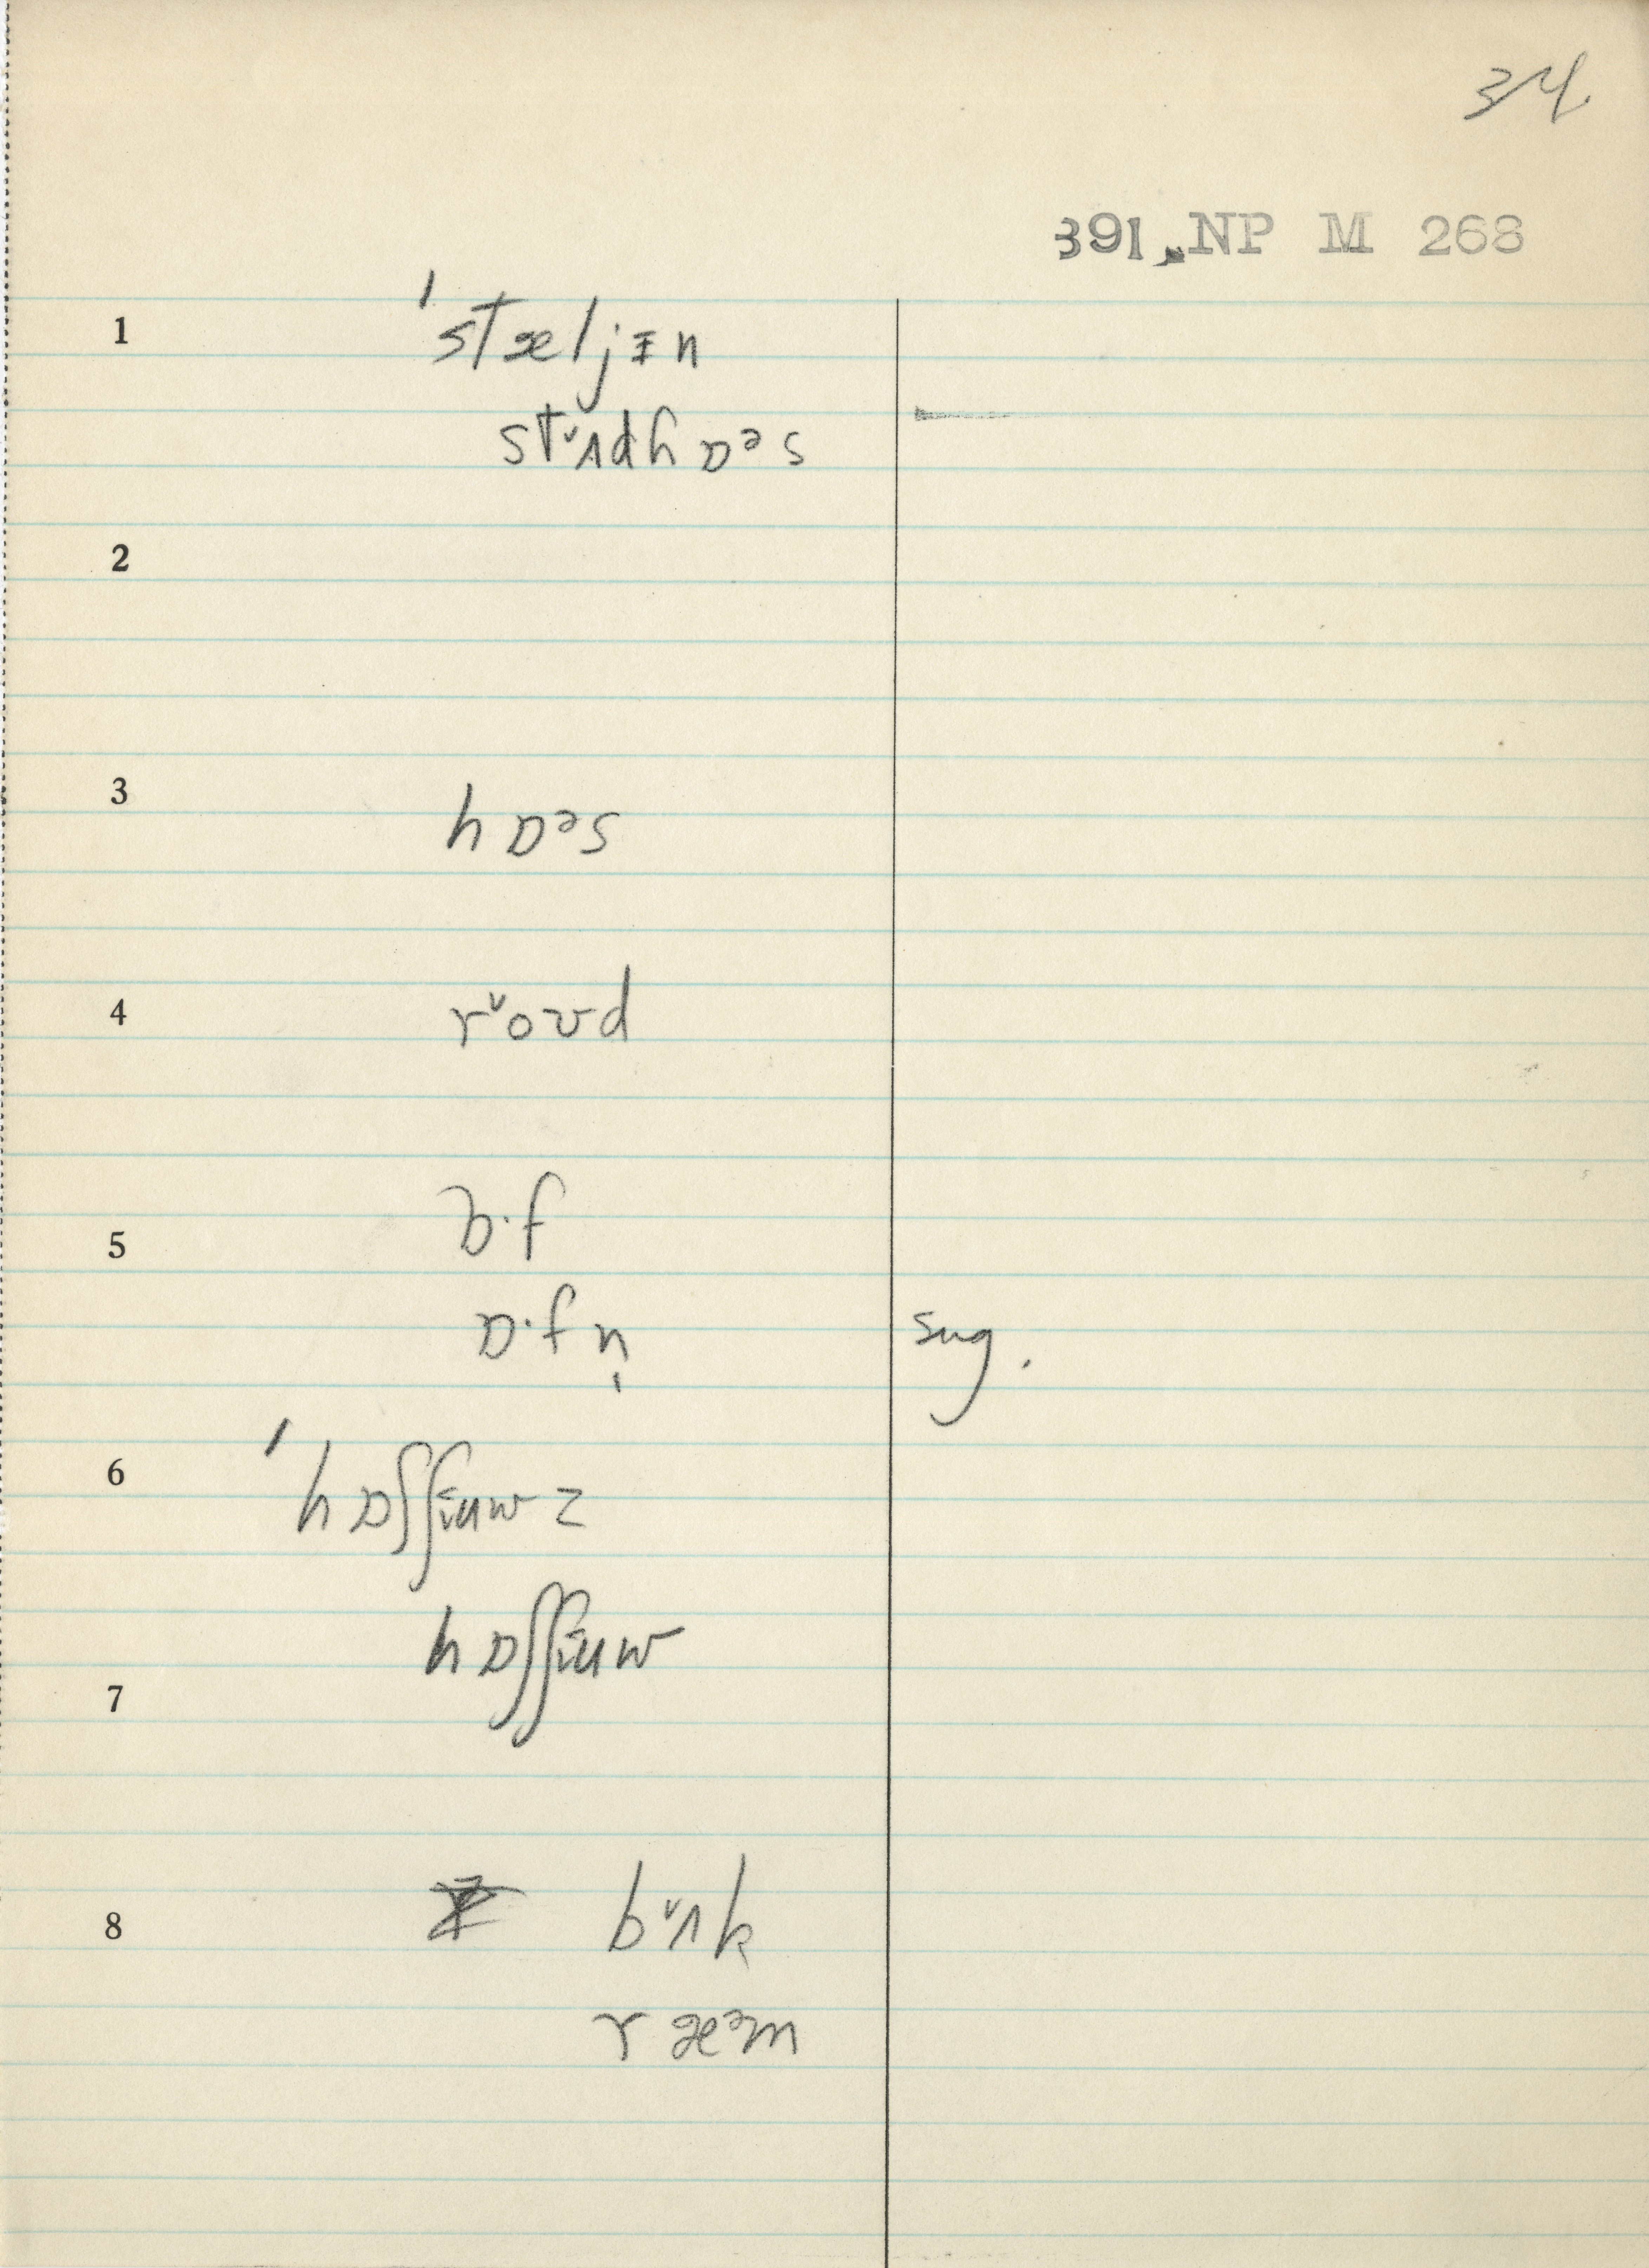 34
391. NP M 268
1 ˈstæljᵻn
stᵛʌdhɒᵊs
2
3 hɒᵊs
4 rᵛoʊd
5 ɔ·f
ɒ·fn̩
sug.
6 ˈhɒʃʃɪuwz
hɒʃʃɪuw
7
8 bᵛʌk
ræᵊm